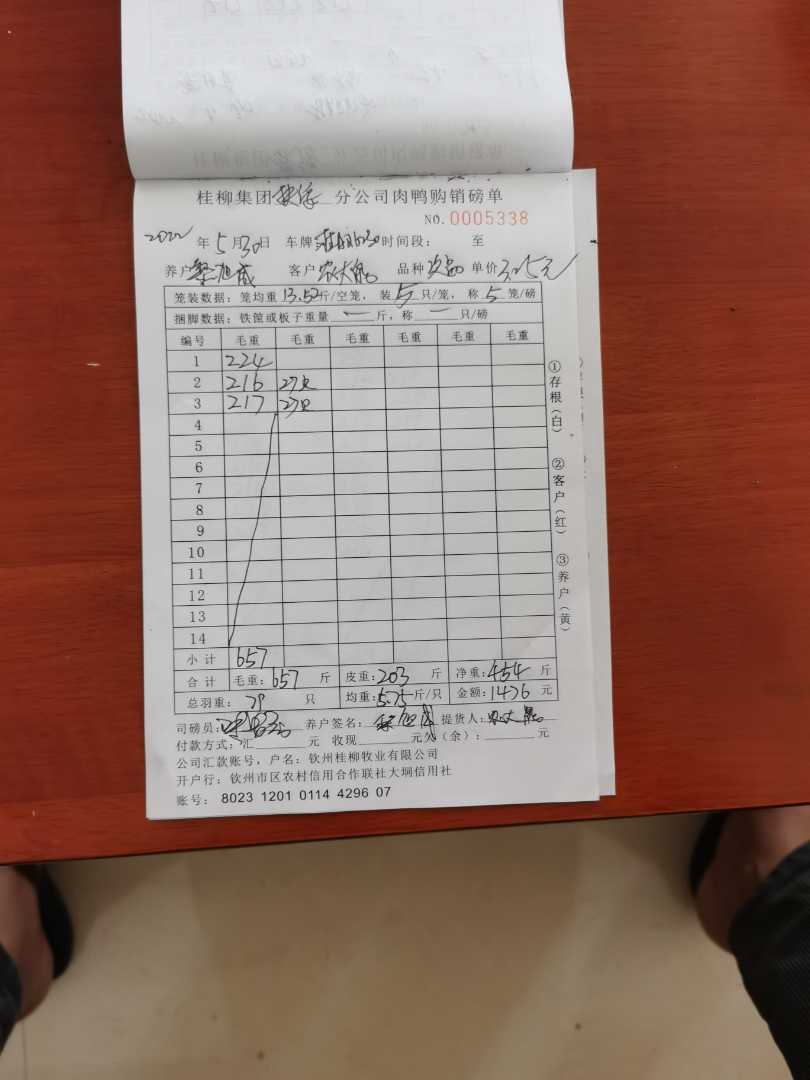 桂柳集团 分公司肉鸭购销磅单
NO.0005338
2022年5月30日 车牌 时间段： 至
养户 客户 农大 品种 次品 单价 3.25元
笼装数据：笼均重 13.52斤/空笼，装 5 只/笼，称 5 笼/磅
捆脚数据：铁筐或板子重量 — 斤，称 — 只/磅
编号 毛重 毛重 毛重 毛重 毛重 毛重
1 224
2 216 27只
3 217 27只
4
5
6
7
8
9
10
11
12
13
14
小计 657
合计 毛重：657 斤 皮重：203 斤 净重：454 斤
总羽重：79 只 均重：5.75斤/只 金额：1476 元
司磅员： 养户签名： 提货人：农大
付款方式：汇 元 收现 元欠（余）： 元
公司汇款账号，户名：钦州桂柳牧业有限公司
开户行：钦州市区农村信用合作联社大垌信用社
账号：8023 1201 0114 4296 07
①存根（白）
②客户（红）
③养户（黄）